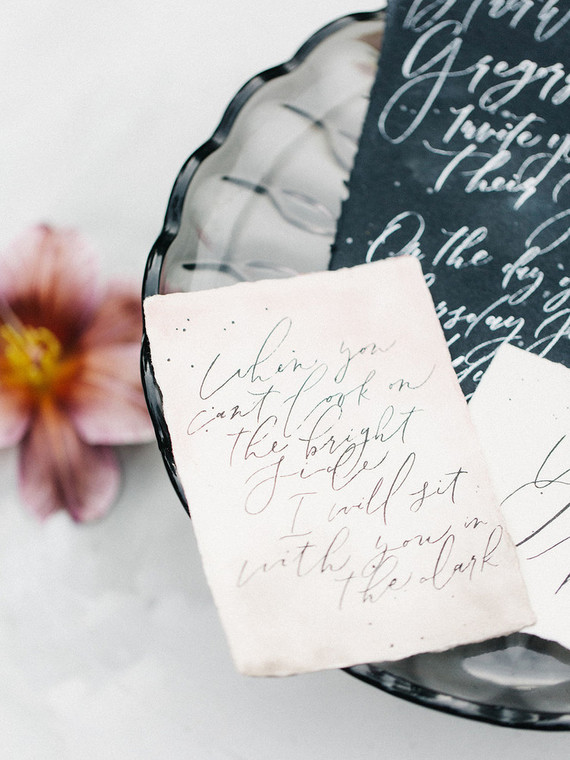 Gregory
Invite
Their
On the day
When you
can't look on
the bright
side
I will sit
with you in
the dark